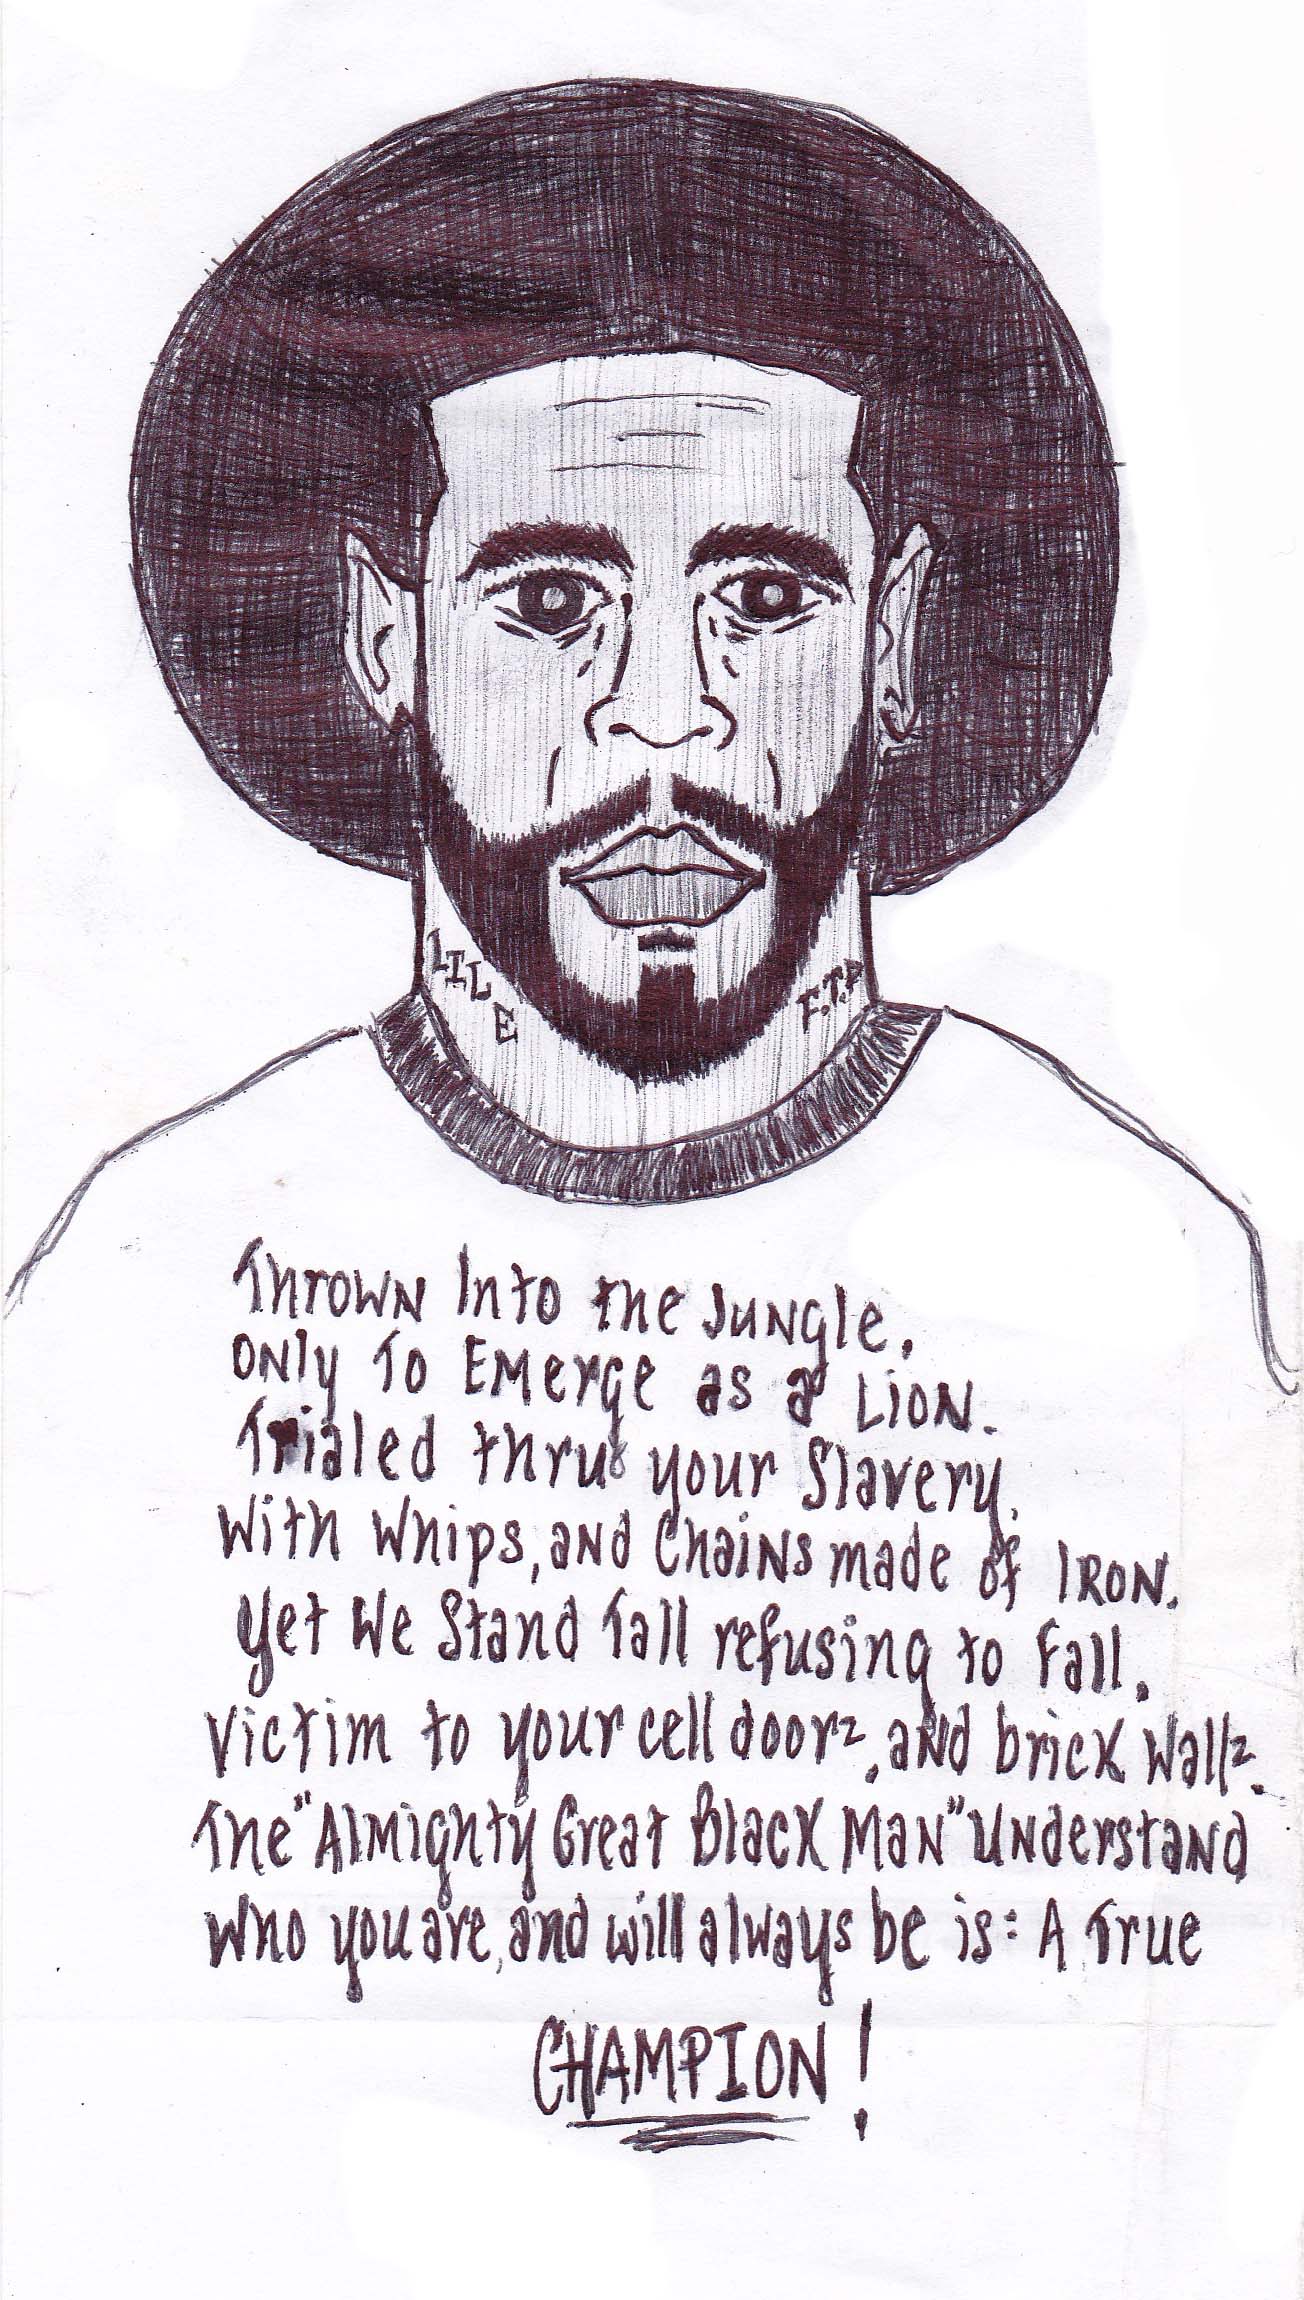 LIL E
F.T.P
Thrown Into the Jungle,
Only To Emerge as a Lion.
Trialed thru your Slavery,
With Whips, and Chains made of IRON.
Yet We Stand Tall refusing to Fall,
Victim to your cell doorz, and brick Wallz.
The "Almighty Great Black Man" Understand
Who you are, and will always be is: A True
CHAMPION!